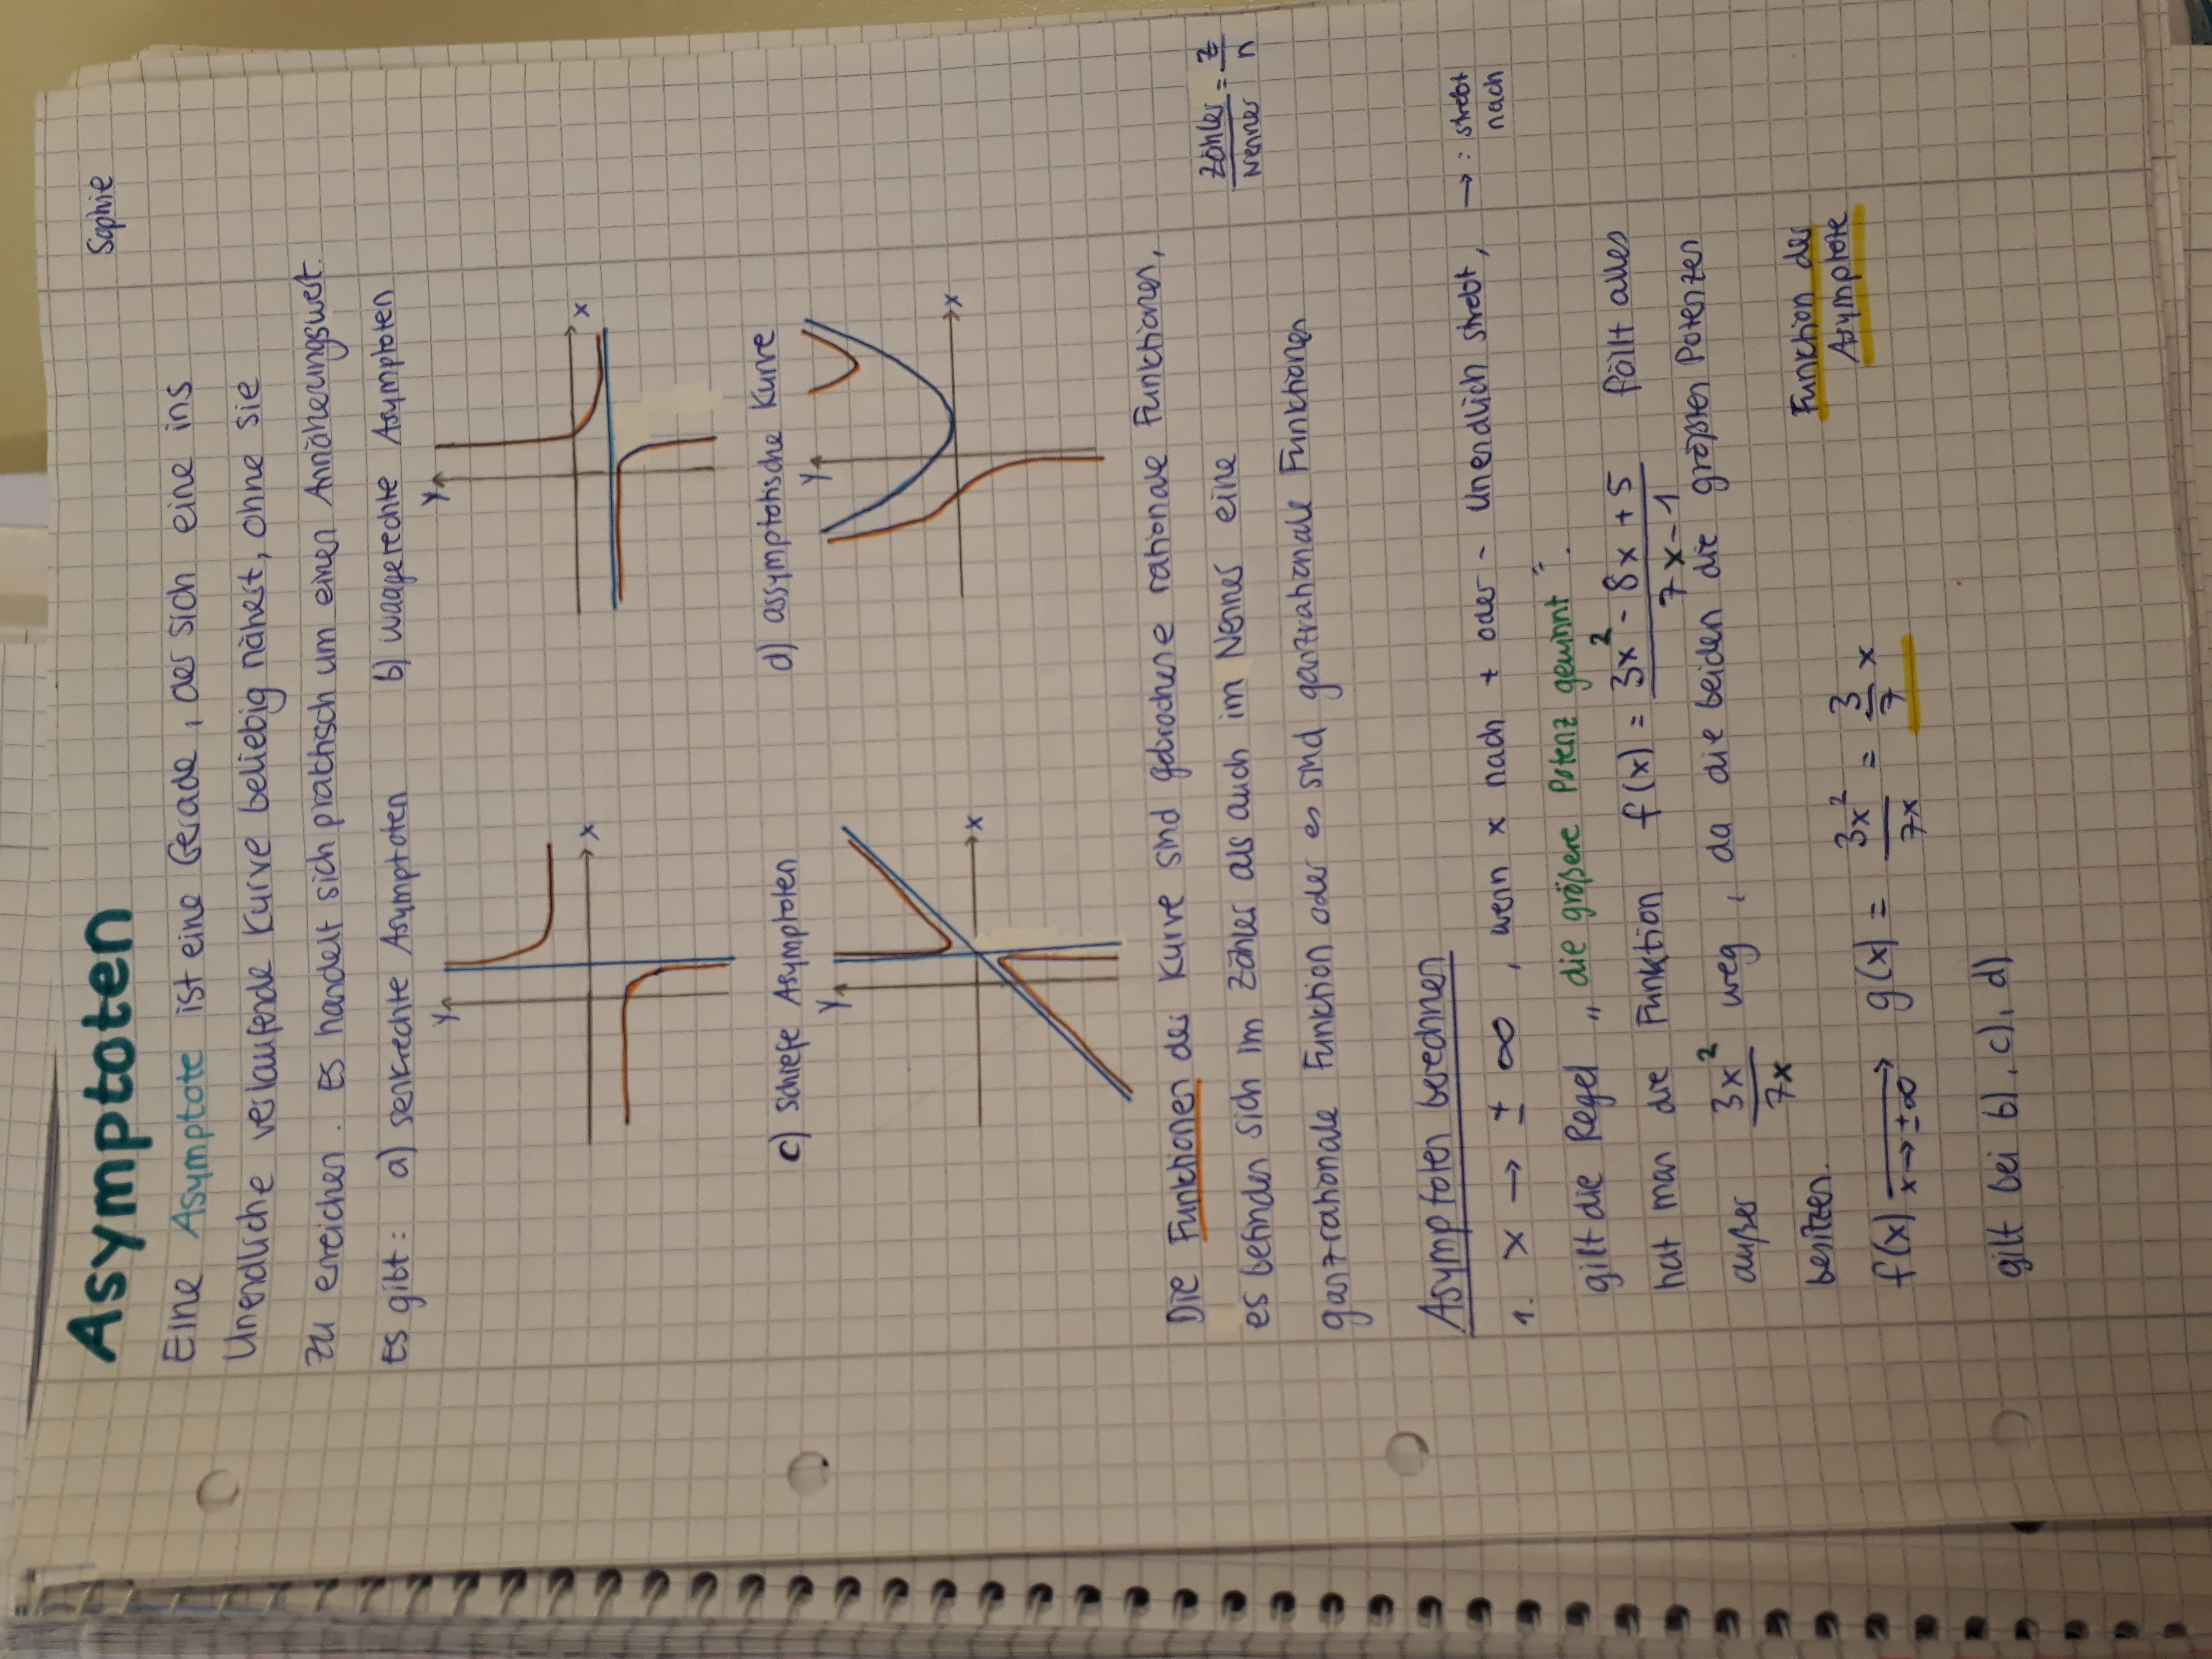 Sophie
Asymptoten
Eine Asymptote ist eine Gerade, der sich eine ins
Unendliche verlaufende Kurve beliebig nähert, ohne sie
zu erreichen. Es handelt sich praktisch um einen Annäherungswert.
Es gibt: a) senkrechte Asymptoten b) waagerechte Asymptoten
y x y x
c) schiefe Asymptoten d) assymptotische Kurve
y x y x
Die Funktionen der Kurve sind gebrochene rationale Funktionen,
es befinden sich im Zähler als auch im Nenner eine Zähler/Nenner = z/n
ganzrationale Funktion oder es sind ganzrationale Funktionen
Asymptoten berechnen
1. x → ± ∞, wenn x nach + oder - Unendlich strebt, → : strebt nach
gilt die Regel "die größere Potenz gewinnt".
hat man die Funktion f(x) = (3x² - 8x + 5)/(7x - 1) fällt alles
außer 3x²/7x weg, da die beiden die größten Potenzen
besitzen.
f(x) x→±∞ → g(x) = 3x²/7x = 3/7 x Funktion der Asymptote
gilt bei b), c), d)